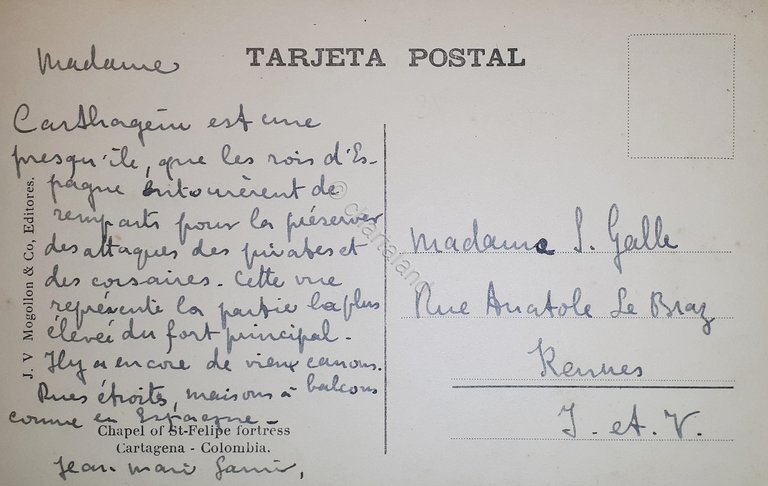 TARJETA POSTAL
Madame
Carthagène est une
presqu'île, que les rois d'Es-
pagne entourèrent de
remparts pour la préserver
des attaques des pirates et
des corsaires. Cette vue
représente la partie la plus
élevée du fort principal.
Il y a encore de vieux canons.
Rues étroites, maisons à balcons
comme en Espagne.
Jean Marie
Chapel of St-Felipe fortress
Cartagena - Colombia.
J. V Mogollon & Co, Editores.
Madame S. Galle
Rue Anatole Le Braz
Rennes
I. et. V.